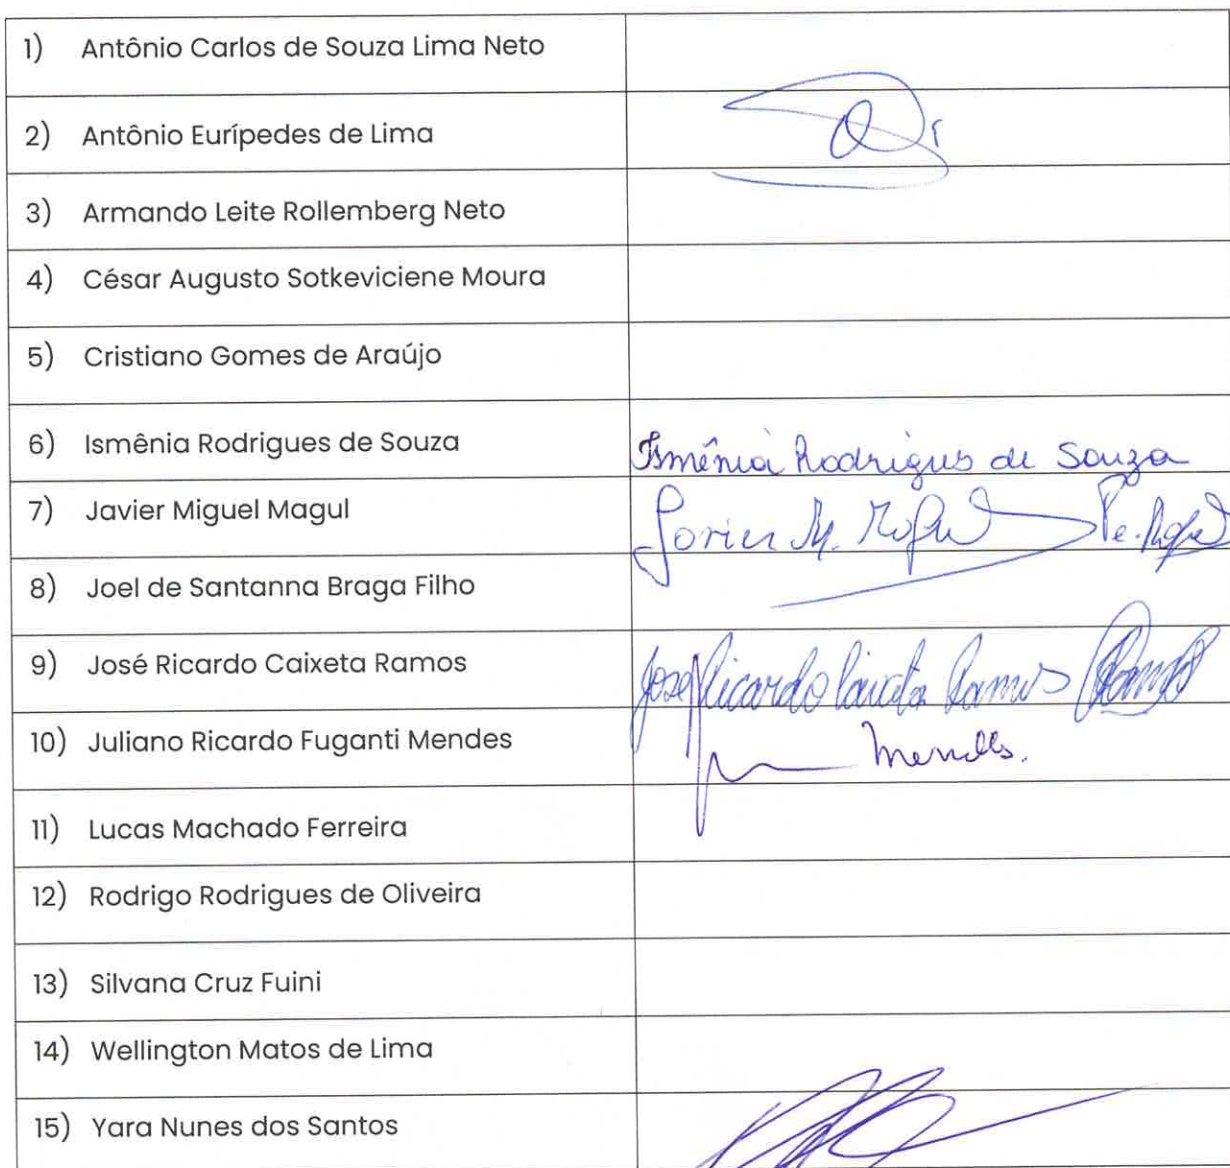 1) Antônio Carlos de Souza Lima Neto
2) Antônio Eurípedes de Lima
3) Armando Leite Rollemberg Neto
4) César Augusto Sotkeviciene Moura
5) Cristiano Gomes de Araújo
6) Ismênia Rodrigues de Souza Ismênia Rodrigues de Souza
7) Javier Miguel Magul Javier M.
8) Joel de Santanna Braga Filho
9) José Ricardo Caixeta Ramos José Ricardo Caixeta Ramos
10) Juliano Ricardo Fuganti Mendes Mendes.
11) Lucas Machado Ferreira
12) Rodrigo Rodrigues de Oliveira
13) Silvana Cruz Fuini
14) Wellington Matos de Lima
15) Yara Nunes dos Santos